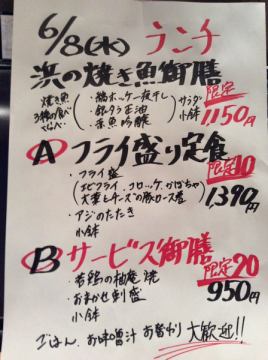 6/8(水) ランチ
浜の焼き魚御膳
焼き魚 ・縞ホッケ一夜干し サラダ 限定
3種の食べくらべ ・銀ダラ正油 小鉢
・赤魚吟醸 1,150円
A フライ盛り定食
・フライ盛 限定10
(エビフライ、コロッケ、かぼちゃ
大葉とチーズの豚ロース巻) 1390円
・アジのたたき
小鉢
B サービス御膳
・若鶏の柚庵焼 限定20
・おまかせ刺盛 950円
小鉢
ごはん、お味噌汁 お替わり 大歓迎!!